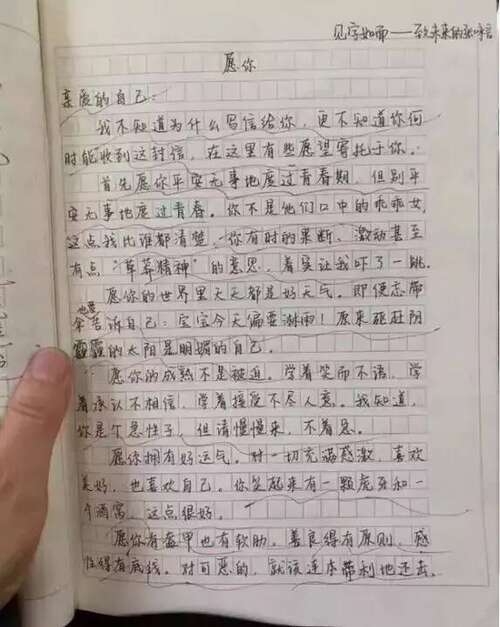 见字如面——致未来的张
愿你
亲爱的自己：
我不知道为什么写信给你，更不知道你何
时能收到这封信，在这里有些愿望寄托于你。
首先愿你平安无事地度过青春期，但别平
安无事地度过青春。你不是他们口中的乖乖女，
这点我比谁都清楚，你有时的果断、激动甚至
有点“草莽精神”的意思，着实让我吓了一跳。
愿你的世界里天天都是好天气。即便忘带
伞也要告诉自己：宝宝今天偏要淋雨！原来砥赶阴
霾的太阳是明媚的自己。
愿你的成熟不是被迫。学着笑而不语，学
着承认不相信，学着接受不尽人意。我知道，
你是个急性子，但请慢慢来，不着急。
愿你拥有好运气。对一切充满感激，喜欢
美好，也喜欢自己。你笑起来有一颗虎牙和一
个酒窝，这点很好。
愿你有盔甲也有软肋。善良得有原则，感
性得有底线。对可恶的，就该连本带利地还去。